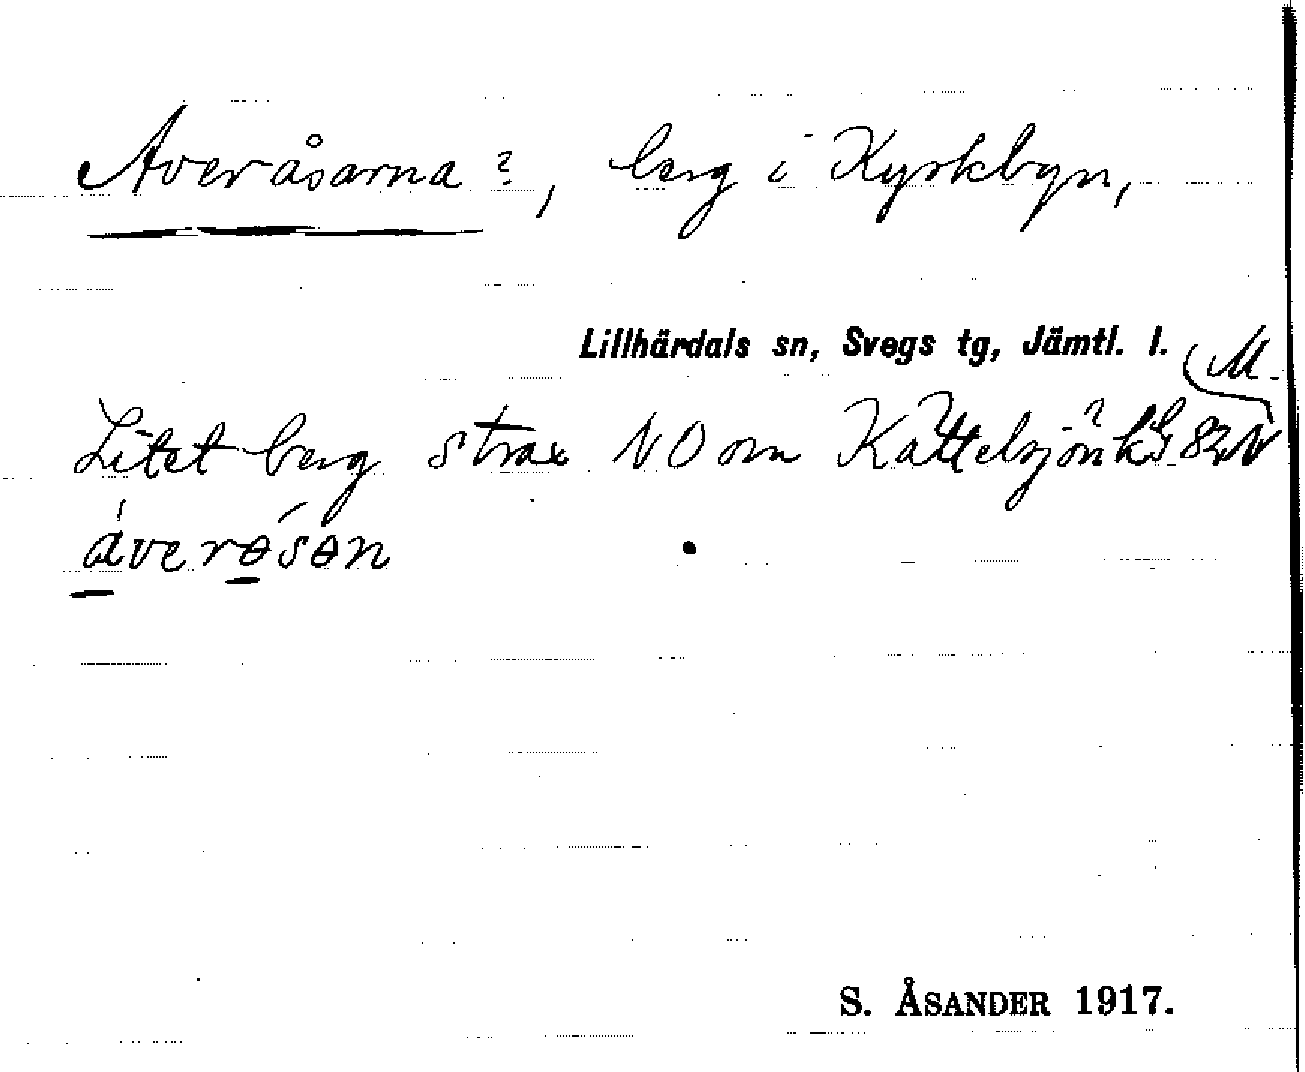 Averåsarna?, berg i Kyrkbyn,
Lillhärdals sn, Svegs tg, Jämtl. l.
Litet berg strax NO om Kattelsjön 82 N
M.
áverɵ́sɵn
S. ÅSANDER 1917.